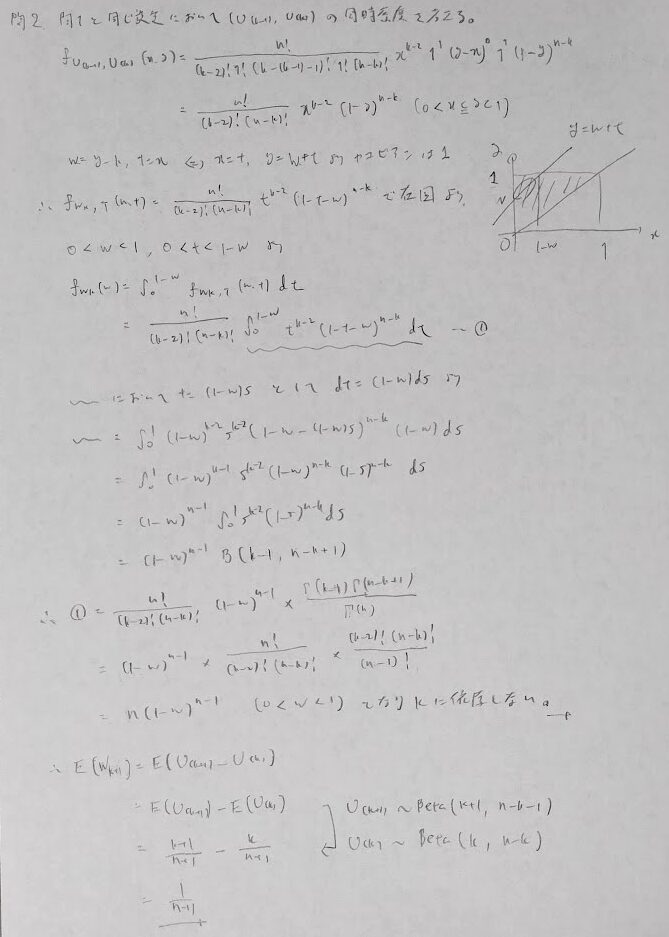 問2 問1と同じ設定において (U(k-1), U(k)) の同時密度を考える。
f_{U(k-1), U(k)}(x, y) = n! / ((k-2)! 1! (k-(k-1)-1)! 1! (n-k)!) x^{k-2} 1^1 (y-x)^0 1^1 (1-y)^{n-k}
= n! / ((k-2)! (n-k)!) x^{k-2} (1-y)^{n-k} (0 < x ≦ y < 1)
w = y-x, t = x ⇔ x = t, y = w+t より ヤコビアンは 1
∴ f_{Wk, T}(w, t) = n! / ((k-2)! (n-k)!) t^{k-2} (1-t-w)^{n-k} で右図より
y = w+t
y
1
w
0
1-w
1
x
0 < w < 1, 0 < t < 1-w より
f_{Wk}(w) = ∫_0^{1-w} f_{Wk, T}(w, t) dt
= n! / ((k-2)! (n-k)!) ∫_0^{1-w} t^{k-2} (1-t-w)^{n-k} dt --①
〜 において t = (1-w)s として dt = (1-w)ds より
〜 = ∫_0^1 (1-w)^{k-2} s^{k-2} (1-w-(1-w)s)^{n-k} (1-w) ds
= ∫_0^1 (1-w)^{k-1} s^{k-2} (1-w)^{n-k} (1-s)^{n-k} ds
= (1-w)^{n-1} ∫_0^1 s^{k-2} (1-s)^{n-k} ds
= (1-w)^{n-1} B(k-1, n-k+1)
∴ ① = n! / ((k-2)! (n-k)!) (1-w)^{n-1} × Γ(k-1) Γ(n-k+1) / Γ(n)
= (1-w)^{n-1} × n! / ((k-2)! (n-k)!) × (k-2)! (n-k)! / (n-1)!
= n(1-w)^{n-1} (0 < w < 1) となり k に依存しない。
∴ E(W_{k+1}) = E(U(k+1) - U(k))
= E(U(k+1)) - E(U(k))
U(k+1) ~ Beta(k+1, n-k-1)
= (k+1)/(n+1) - k/(n+1)
U(k) ~ Beta(k, n-k)
= 1/(n+1)